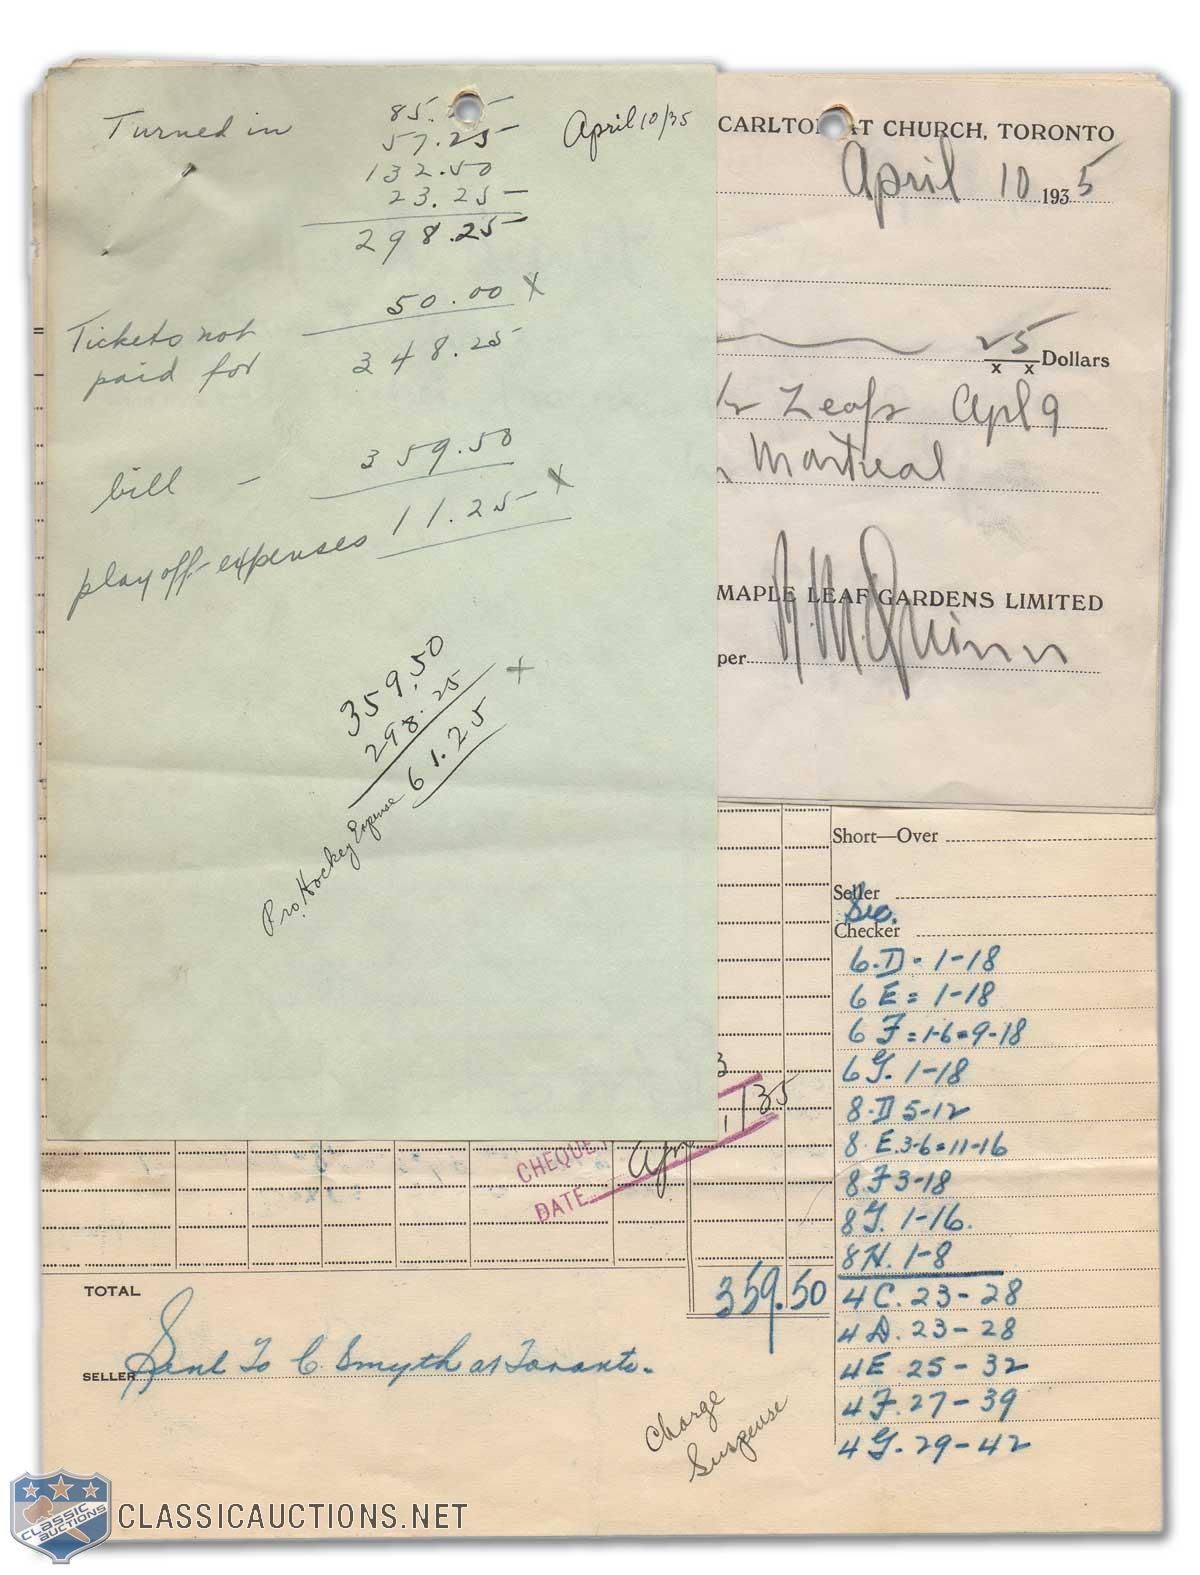 Turned in 85.25 April 10/35
57.25
132.50
23.25
298.25
50.00 X
Tickets not
paid for 348.25
bill - 359.50
play off expenses 11.25 X
359.50
298.25 X
61.25
Pro. Hockey Expense
CARLTON AT CHURCH, TORONTO
April 10 1935
25
x x Dollars
Leafs Apl 9
Montreal
MAPLE LEAF GARDENS LIMITED
per
Short—Over
Seller
Checker
6.D. 1-18
6 E = 1-18
6 F = 1-6 = 9-18
6 G. 1-18
8.D 5-12
8 E. 3-6 = 11-16
8 F 3-18
8 G. 1-16.
8 H. 1-8
4 C. 23-28
4 D. 23-28
4 E 25-32
4 F. 27-39
4 G. 29-42
CHEQUE
DATE
TOTAL 359.50
SELLER Sent To C. Smyth at Toronto.
Charge
Suspense
CLASSIC
AUCTIONS
CLASSICAUCTIONS.NET